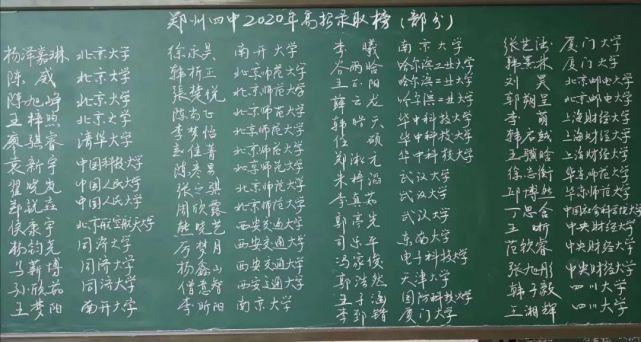 郑州四中2020年高招录取榜(部分)
杨泽嘉琳 北京大学
陈威 北京大学
陈旭峥 北京大学
王梓煦 北京大学
骐睿 清华大学
袁新宇 中国科技大学
翟晓岚 中国人民大学
郑锐垚 中国人民大学
侯康宇 北京航空航天大学
杨钧尧 同济大学
马薪博 同济大学
孙欣茹 同济大学
王梦阳 南开大学
徐永昊 南开大学
韩析正 北京师范大学
张楚悦 北京师范大学
陈尚正 北京师范大学
李梦怡 北京师范大学
赵佳菁 北京师范大学
陈彦 北京师范大学
张之骐 北京师范大学
周欣露 北京师范大学
熊晓艺 西安交通大学
厉梦月 西安交通大学
杨鑫山 西安交通大学
西安交通大学
李昕阳 南京大学
李曦 南京大学
谷雨晗 哈尔滨工业大学
王正阳 哈尔滨工业大学
薛云龙 哈尔滨工业大学
韩天 华中科技大学
任硕 华中科技大学
郑淑元 华中科技大学
朱梓滔 武汉大学
李真茹 武汉大学
郭亭先 武汉大学
司乐平 东南大学
冯家俊 电子科技大学
郭浩然 天津大学
王子涵 国防科技大学
李郅锴 厦门大学
张艺 厦门大学
韩景林 厦门大学
刘昊 北京邮电大学
郭翔呈 北京邮电大学
李萌 上海财经大学
韩启越 上海财经大学
王骥晗 上海财经大学
徐志衡 华东师范大学
邱博然 华东师范大学
丁思含 中国社会科学院大学
王昕 中央财经大学
范钦睿 中央财经大学
张旭彤 中央财经大学
韩子毅 四川大学
王湘辉 四川大学